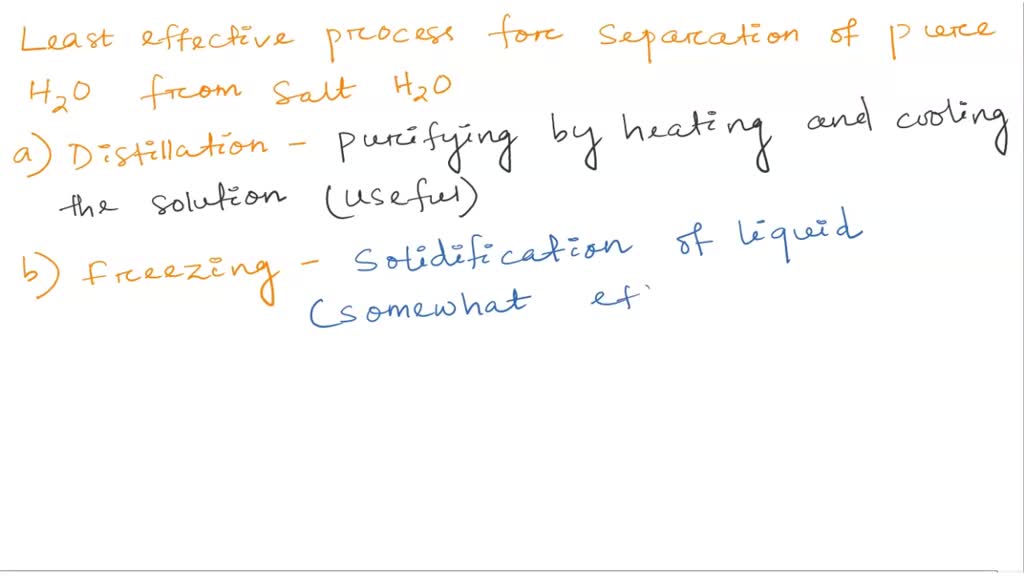 Least effective process for separation of pure
H2O from salt H2O
a) Distillation - purifying by heating and cooling
the solution (useful)
b) freezing - solidification of liquid
(somewhat ef